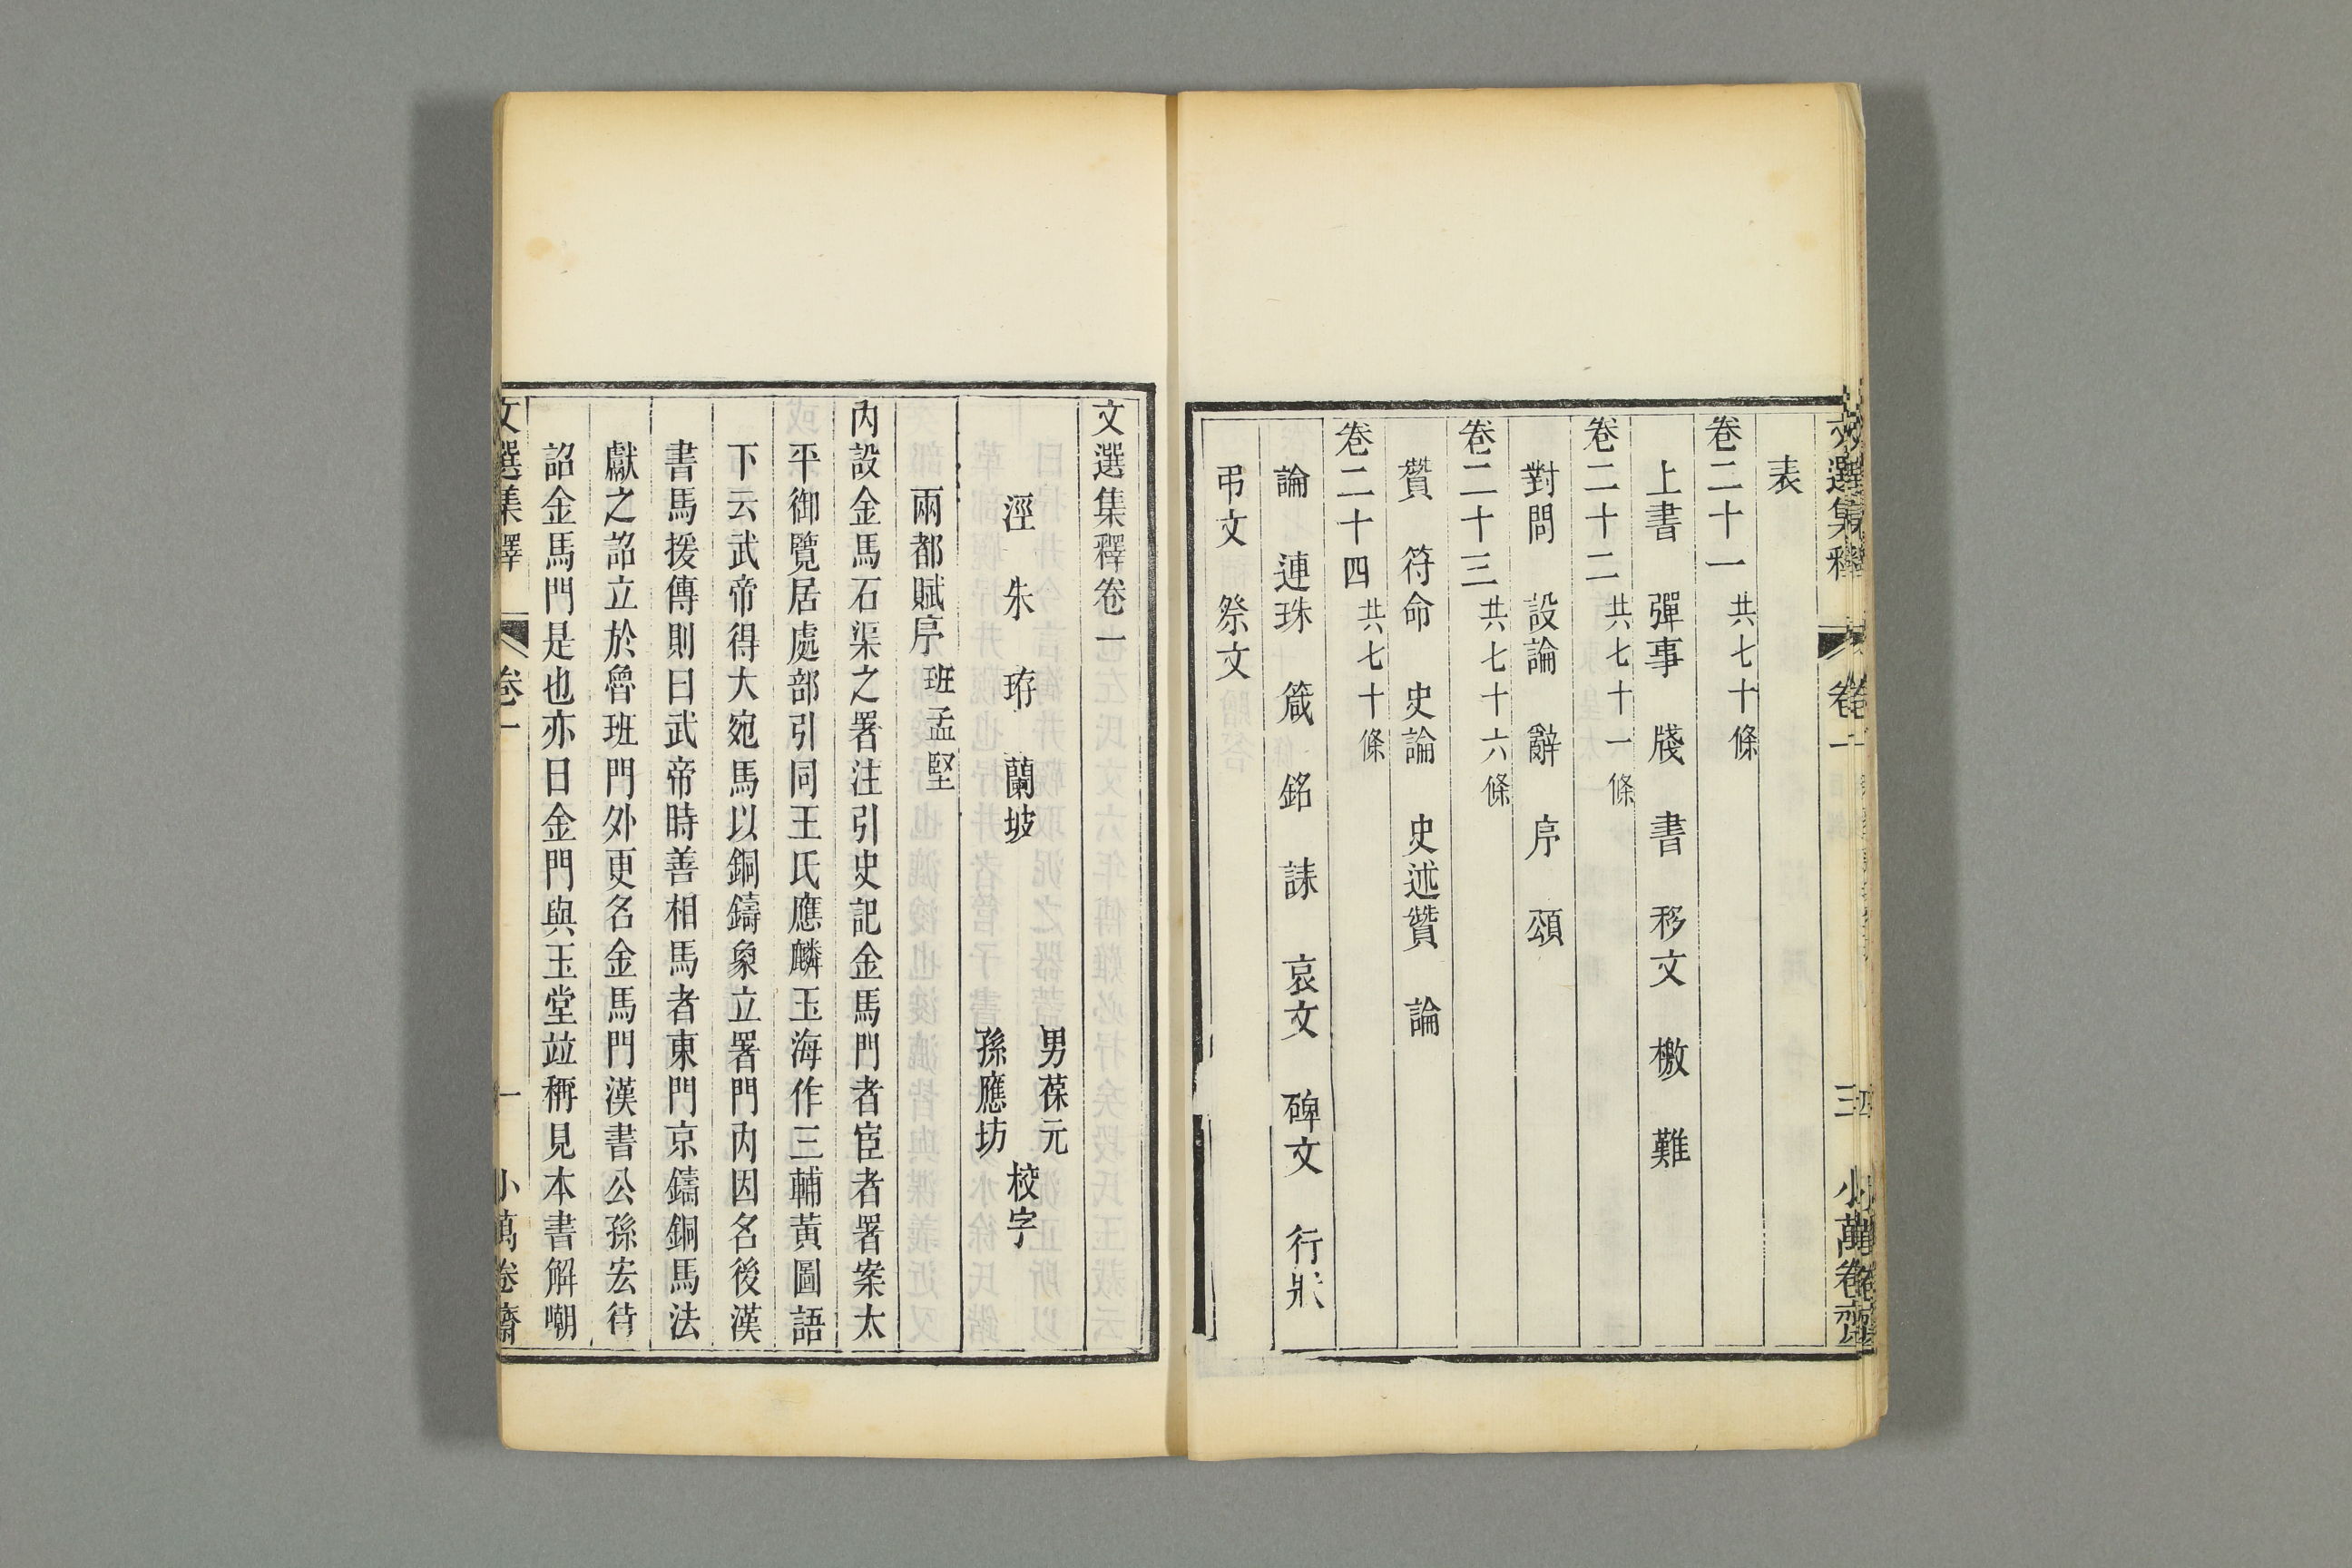 表
卷二十一 共七十條
上書 彈事 牋 書 移文 檄 難
卷二十二 共七十一條
對問 設論 辭 序 頌
卷二十三 共七十六條
贊 符命 史論 史述贊 論
卷二十四 共七十條
論 連珠 箴 銘 誄 哀文 碑文 行狀
弔文 祭文
文選集釋卷一
男葆元
涇 朱 珔 蘭坡 校字
孫應坊
兩都賦序 班孟堅
內設金馬石渠之署注引史記金馬門者宦者署案太
平御覽居處部引同王氏應麟玉海作三輔黃圖語
下云武帝得大宛馬以銅鑄象立署門內因名後漢
書馬援傳則曰武帝時善相馬者東門京鑄銅馬法
獻之詔立於魯班門外更名金馬門漢書公孫宏待
詔金馬門是也亦曰金門與玉堂竝稱見本書解嘲
文選集釋 卷一 一 小萬卷齋